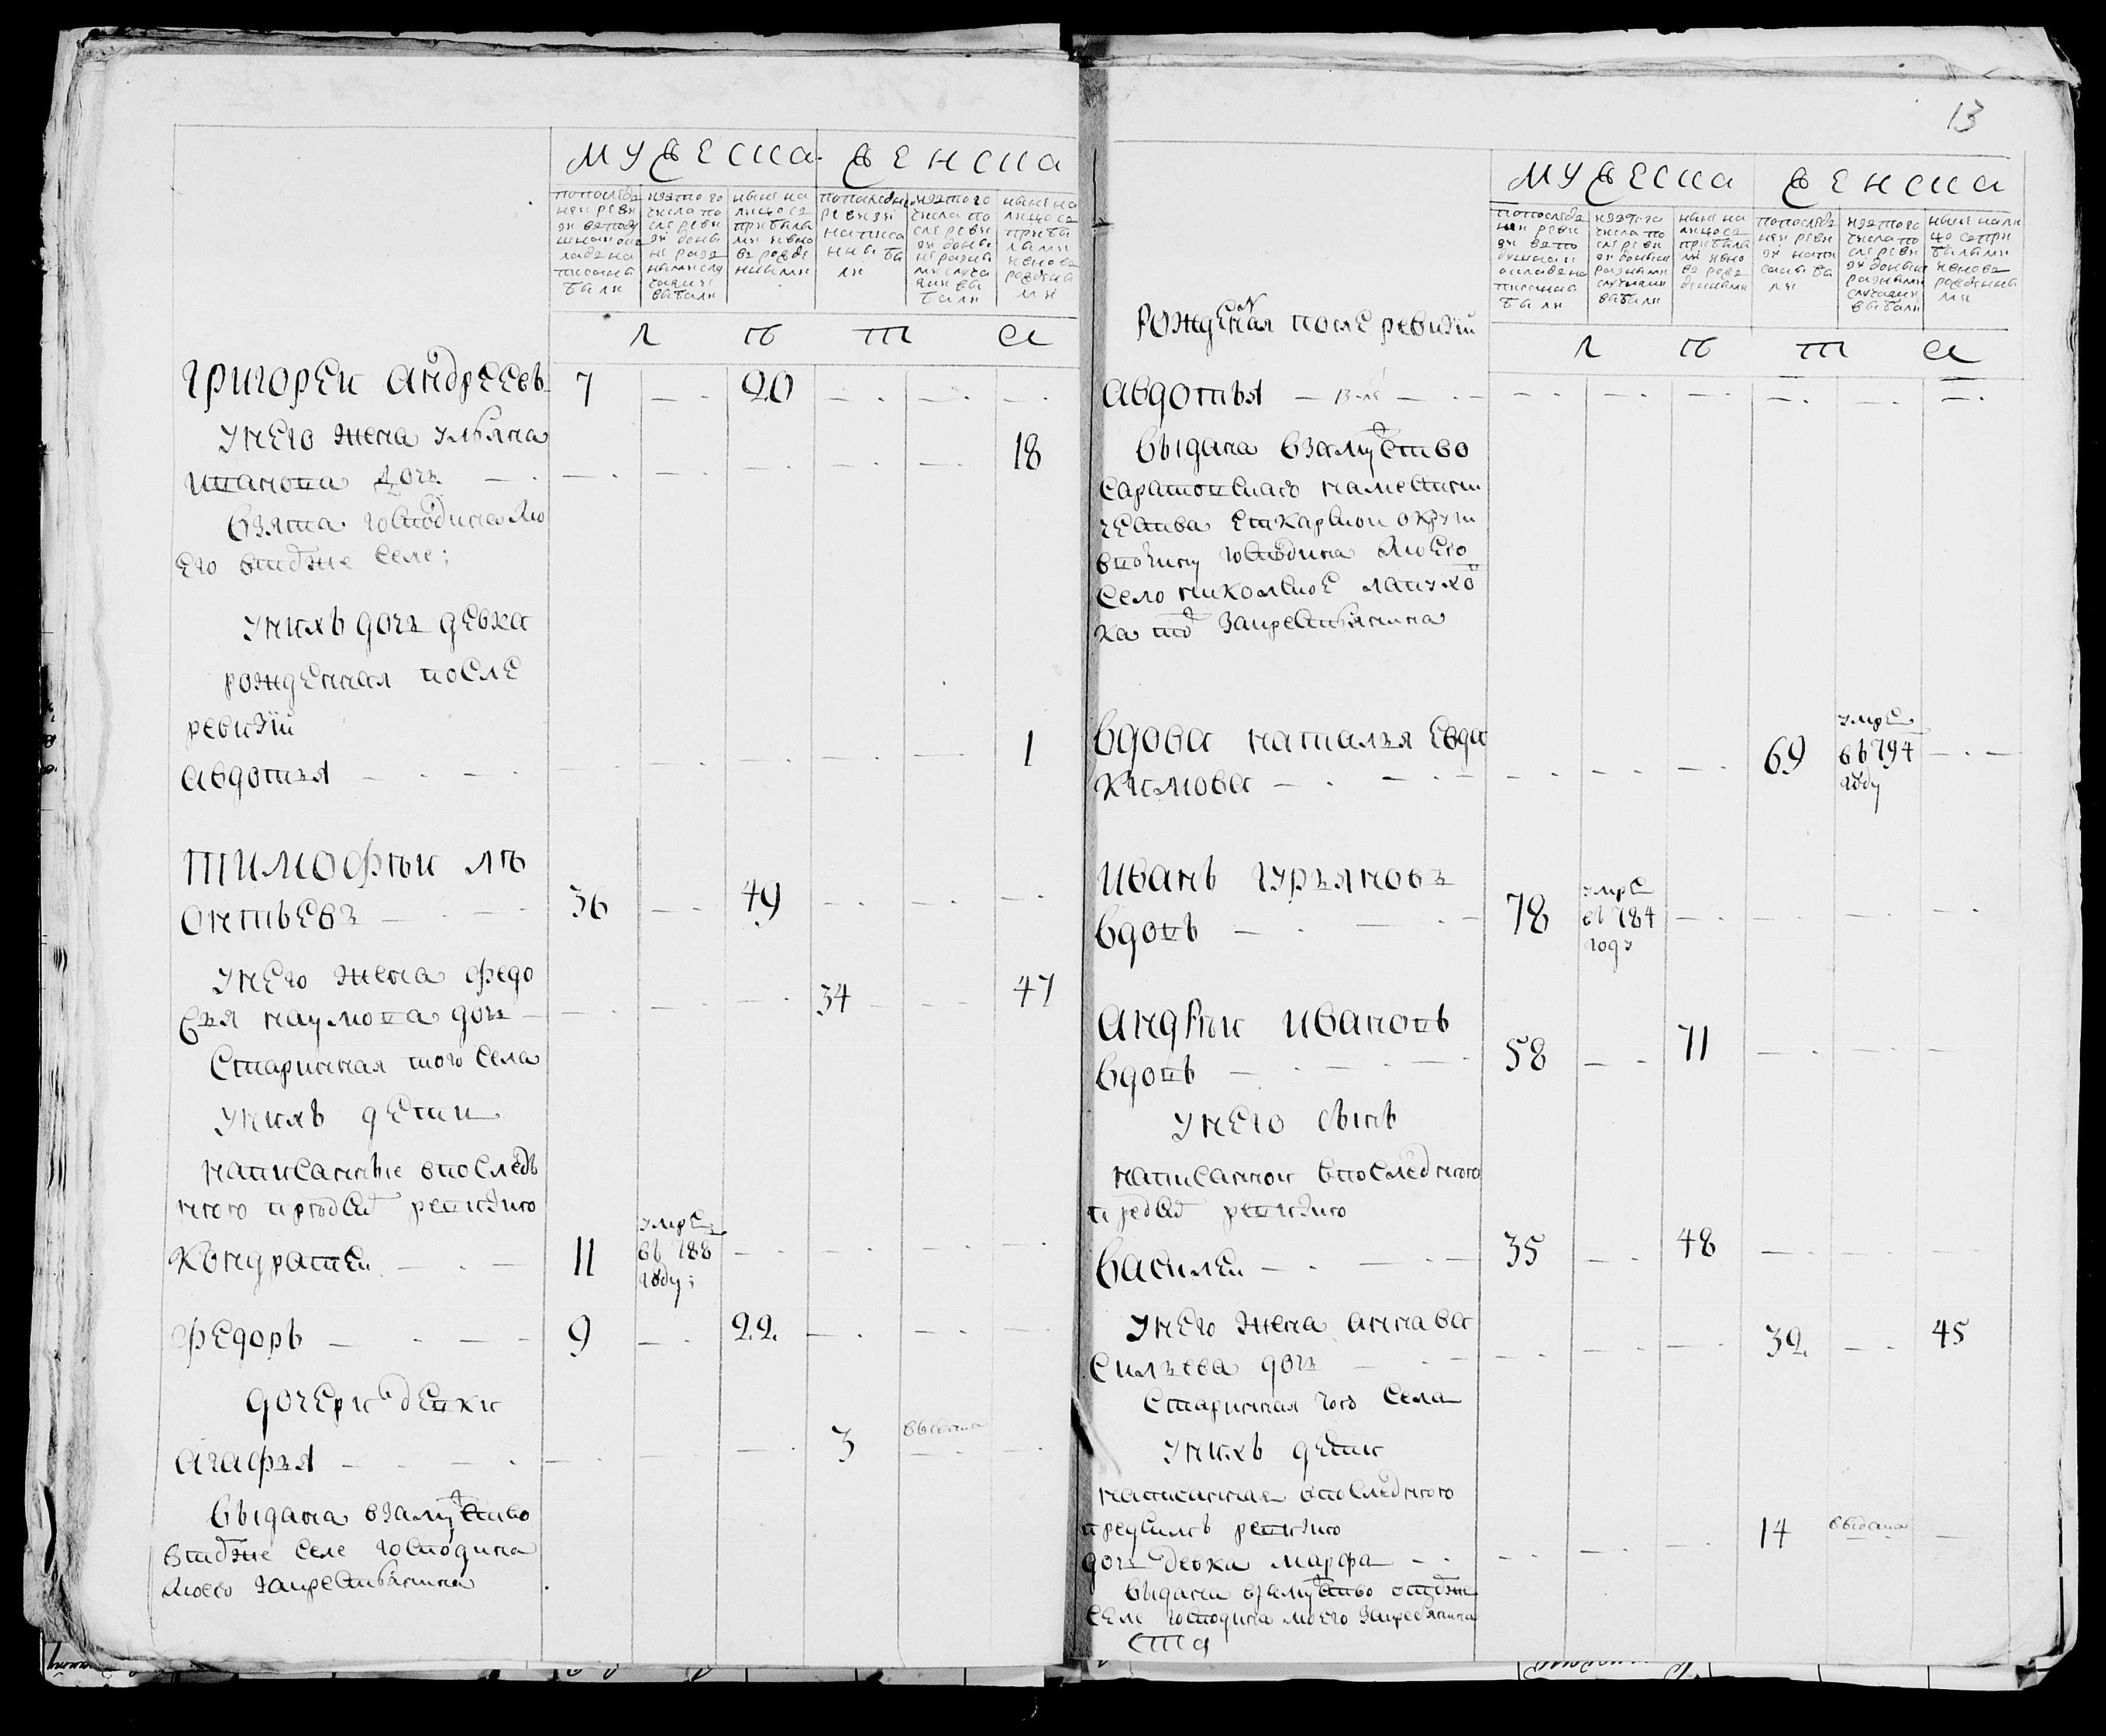 мужеска
женска
по последней ревизии в подушном окладе написаны были
из того числа после ревизии до ныне разными случаями выбыли
ныне на лицо с прибылыми и вновь рожденными
по последней ревизии написаны были
из того числа по сле ревизии до ныне разными случаями выбыли
ныне на лицо с прибылыми и вновь рожденными
л
т
Григореи андреевъ
7
20
Унего жена ульяна
18
иванова дочь
взята господина мо
его втойже селе;
Унихъ дочь девка
рожденная после
ревизïи
авдотья
1
тимофѣи лѣ
онтьевъ
36
49
Унего жена федо
34
47
сья наумова дочь
старинная того села
Унихъ дети
написанныя впоследъ
него предсею ревизию
Кондратеи
11
умре
въ 788
году;
федоръ
9
22
дочери девки
агафья
3
выдана
выдана взамужство
втойже селе господина
моего закрестьянина
13
мужеска
женска
по последней ревизии в подушном окладе написаны были
из того числа после ревизии до ныне разными случаями выбыли
ныне на лицо с прибылыми и вновь рожденными
по последней ревизии написаны были
из того числа после ревизии до ныне разными случаями выбыли
ныне на лицо с прибылыми и вновь рожденными
рожденая после ревизïи
л
т
авдотья
выдана взамужство
саратовскаго наместни
чества аткарскои округи
вотчину господина моего
село никольское
закрестьянина
вдова наталья евда
кимова
69
умре
въ 794
году
иванъ гурьяновъ
вдовъ
78
умре
въ 784
году
андрѣи ивановъ
вдовъ
58
71
Унего сынъ
написаннои впоследнюю
предсею ревизию
василеи
35
48
Унего жена анна ва
32
45
сильева дочь
старинная того села
Унихъ дети
написанная впоследнюю
предсимъ ревизию
14
выдана
дочь девка марфа
выдана взамужство втойже
селе господина моего закресьянина